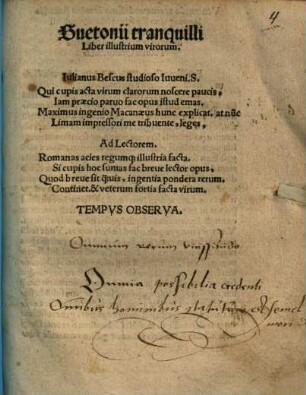 4
Suetonii tranquilli
Liber illustrium virorum.
Iulianus Bescus studioso Iuueni. S.
Qui cupis acta virum clarorum noscere paucis,
Iam præcio paruo fac opus istud emas.
Maximus ingenio Macanæus hunc explicat, at nũc
Limam impressori me tribuente, leges,
Ad Lectorem.
Romanas acies regumq; illustria facta.
Si cupis hoc sumas fac breue lector opus,
Quod breue sit q̃uis, ingentia pondera rerum.
Continet. & veterum fortia facta virum.
TEMPVS OBSERVA.
Omnium rerum vicissitudo
Omnia possibilia credenti
Omnibus hominibus statutum est semel
mori